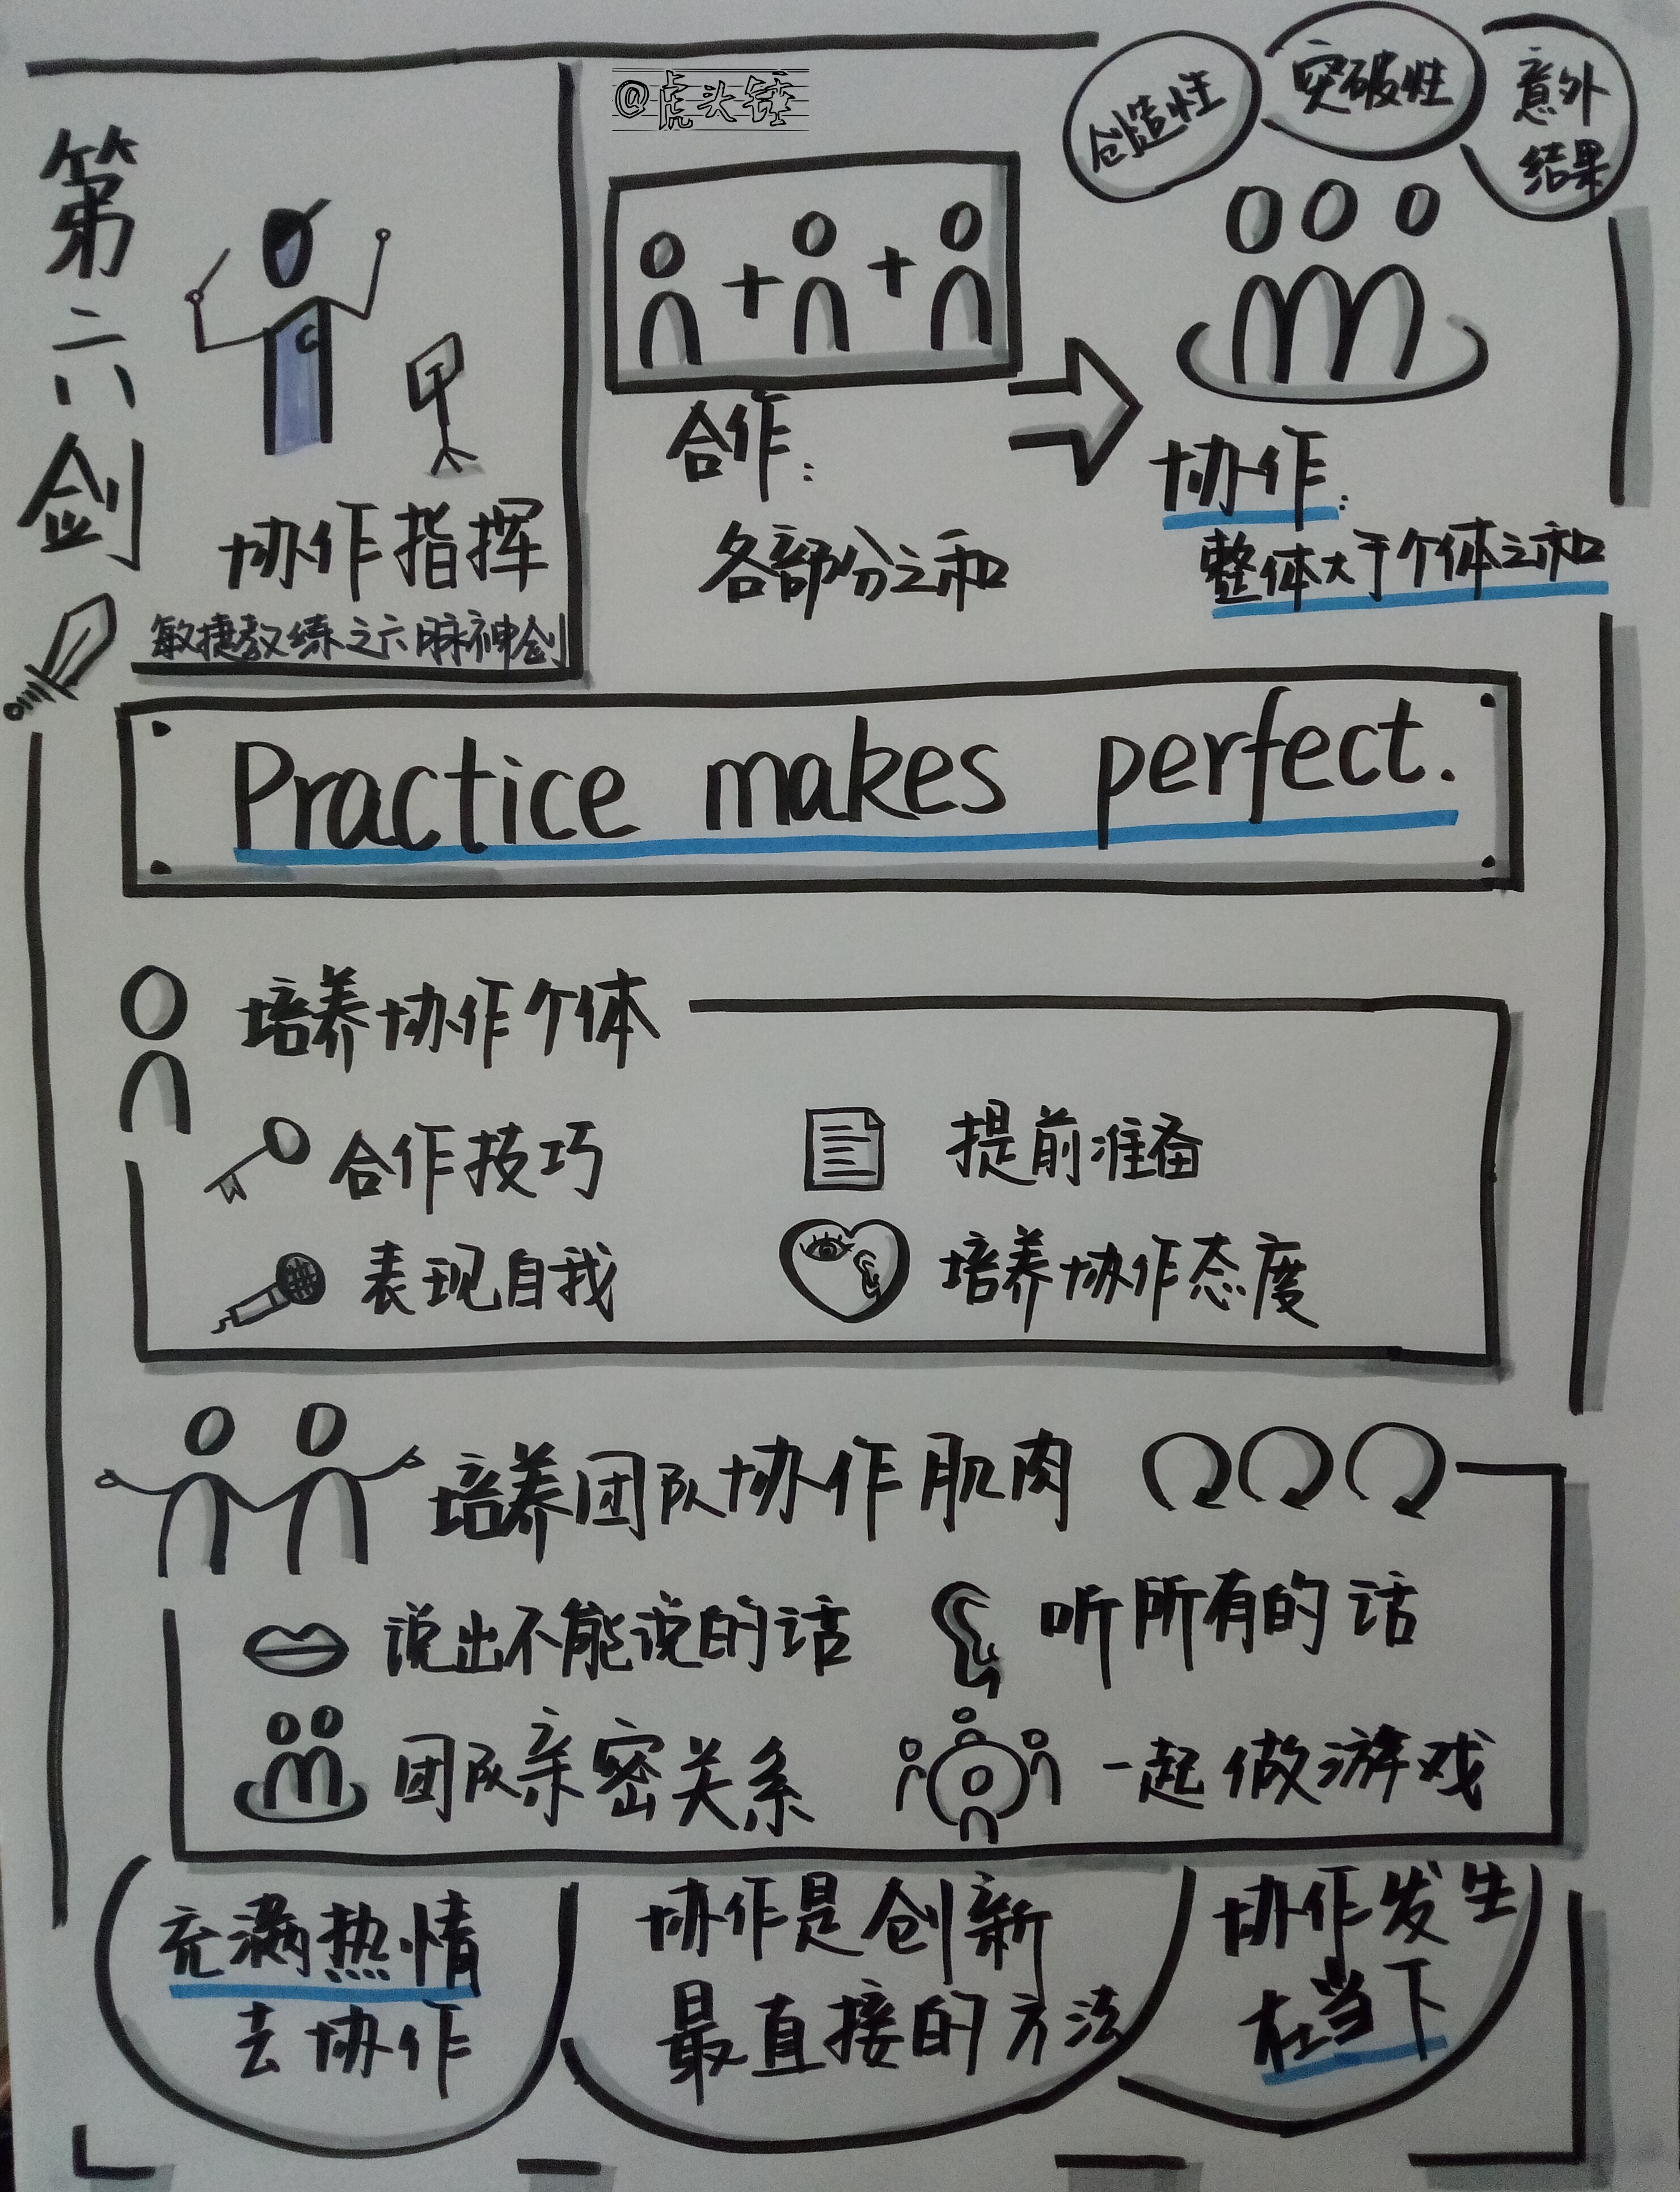 第六剑
协作指挥
敏捷教练之六脉神剑
@虎头锤
合作:
各部分之和
创造性
突破性
意外
结果
协作:
整体大于个体之和
Practice makes perfect.
培养协作个体
合作技巧
提前准备
表现自我
培养协作态度
培养团队协作肌肉
说出不能说的话
听所有的话
团队亲密关系
一起做游戏
充满热情
去协作
协作是创新
最直接的方法
协作发生
在当下